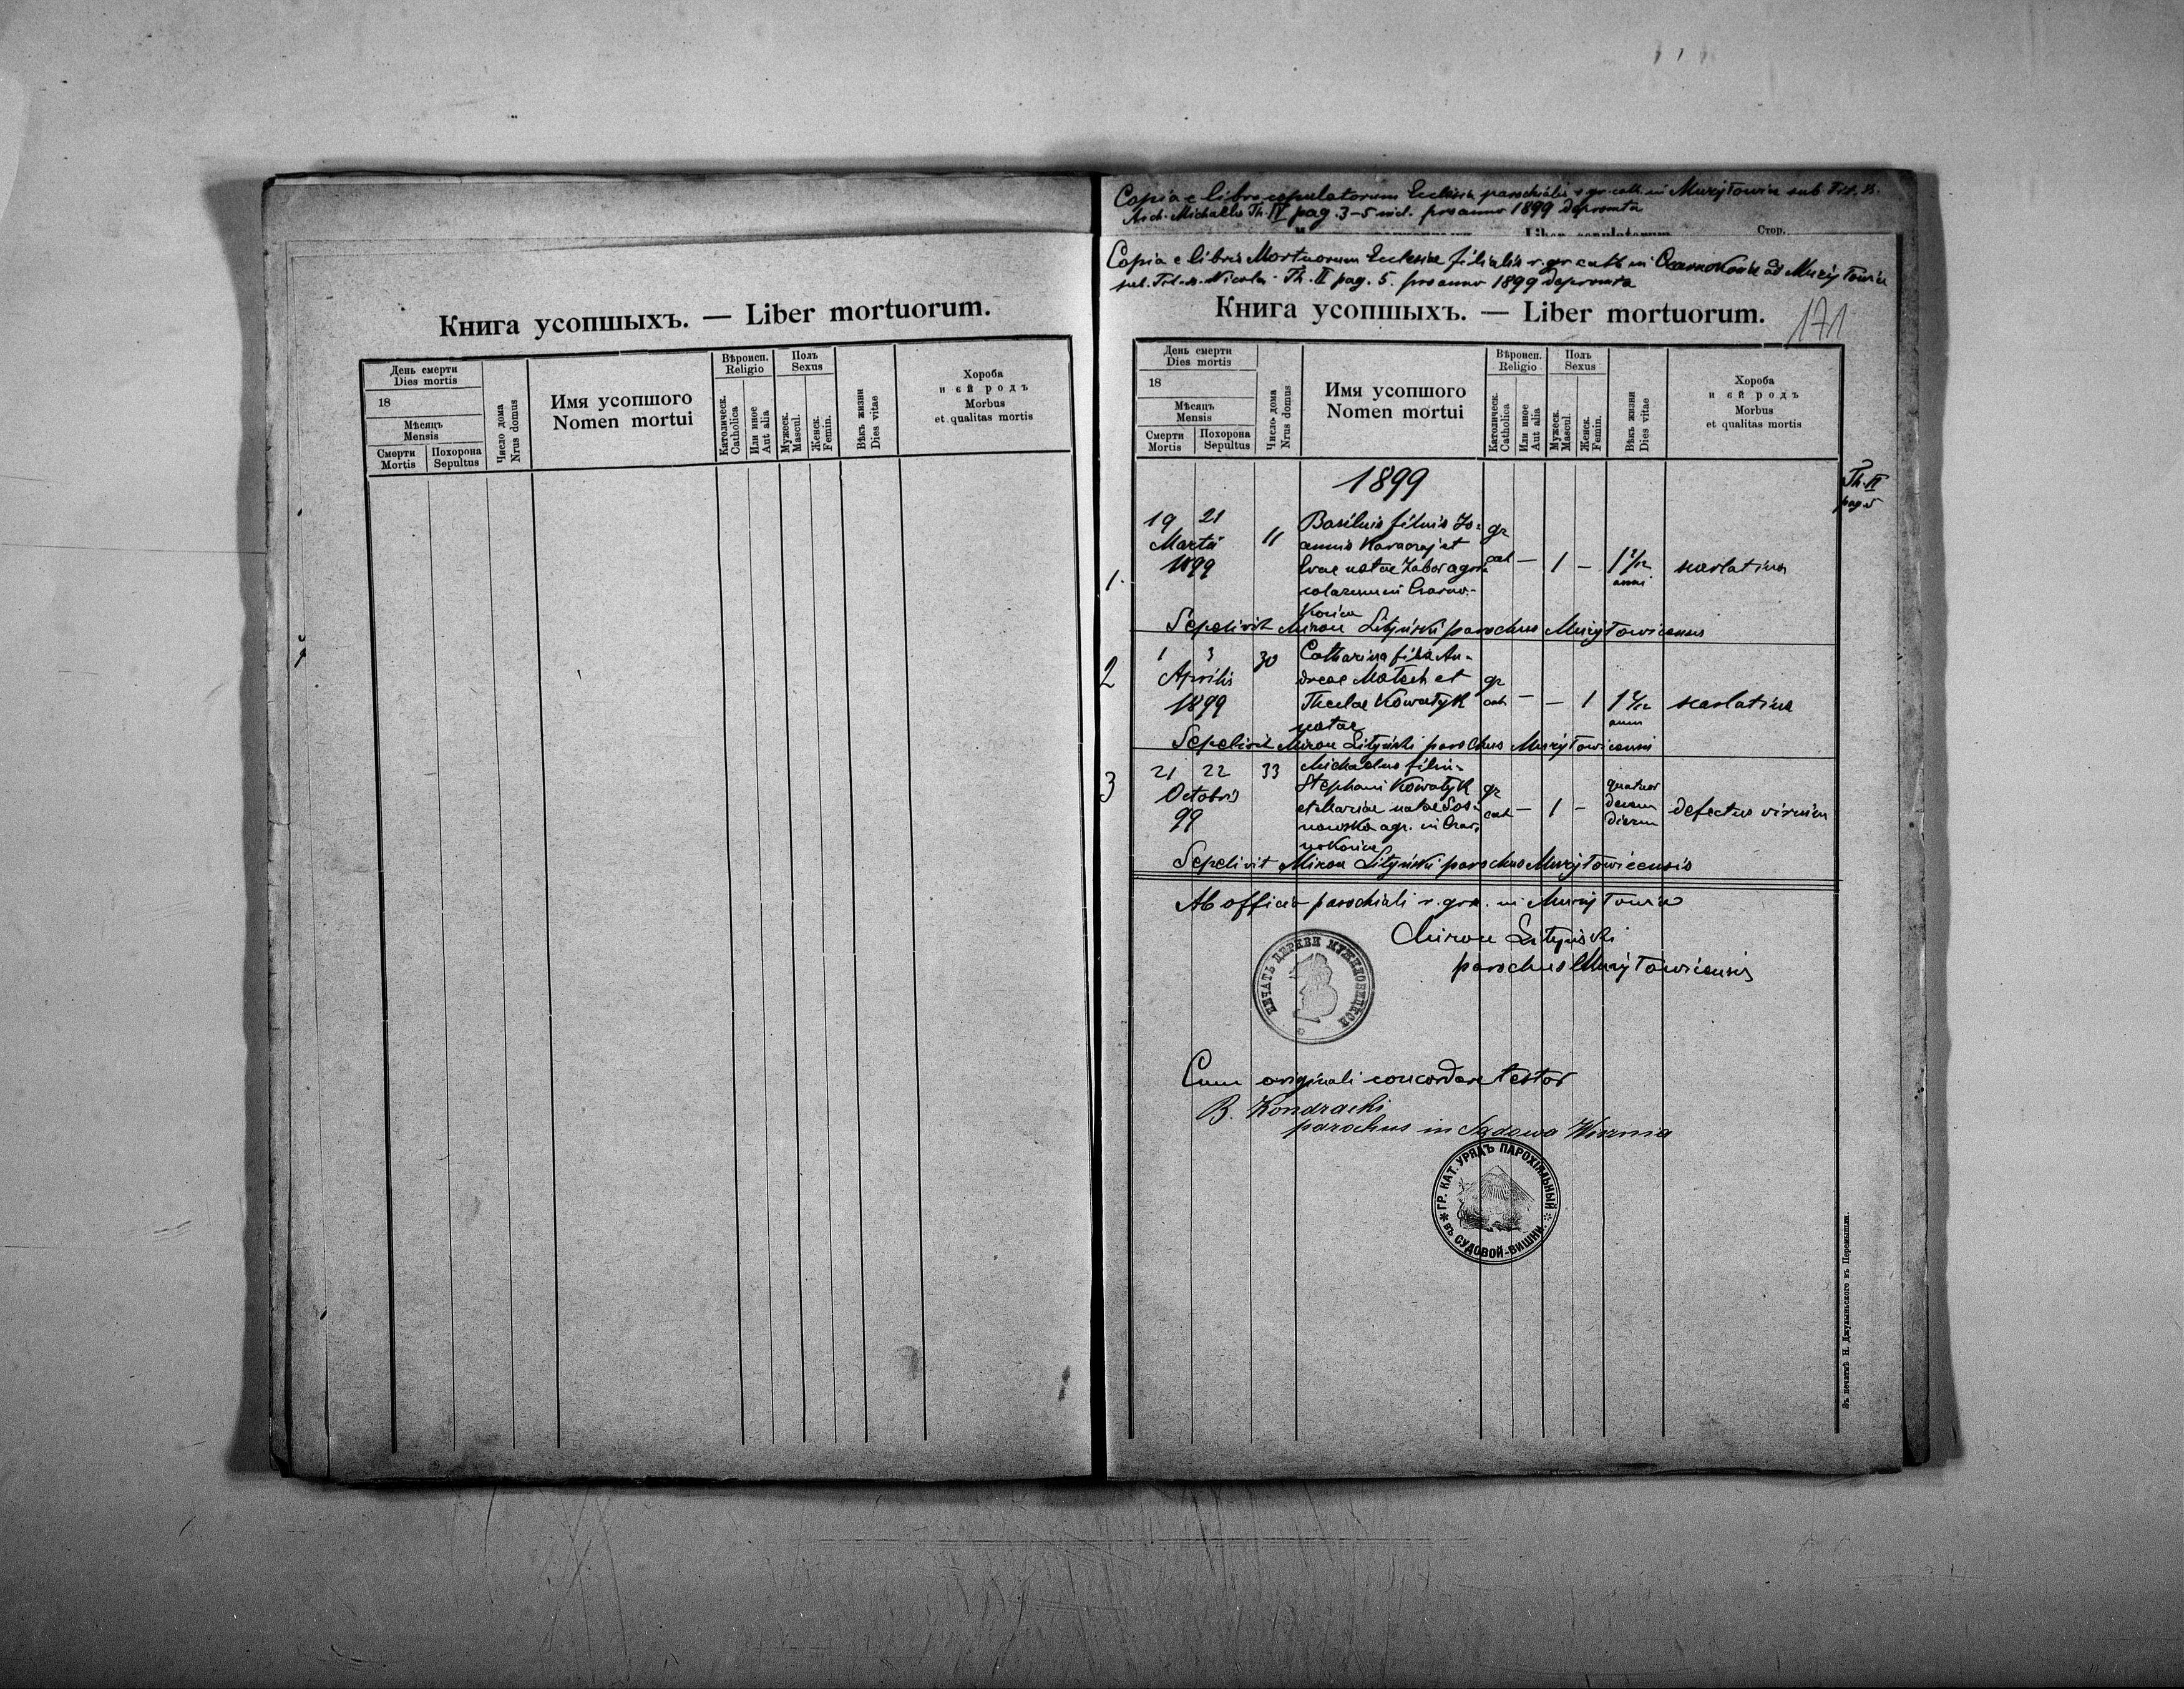 Copia e libro copulatorum Ecclesiae parochialis r. gr. cath. in Mużyłowice sub Tit. S.
Arch. Michaelis Th. IV pag. 3-5 incl. pro anno 1899 depromta
Liber copulatorum
Стор.
Copia e libris Mortuorum Ecclesiae filialis r. gr. cath. in Czarnokońce ad Mużyłowice
sub. Tit. s. Nicolai Th. II pag. 5. pro anno 1899 depromta
Книга усопшыхъ. — Liber mortuorum.
День смерти
Dies mortis
18
Мѣсяць
Mensis
Смерти
Mortis
Похорона
Sepultus
Число дома
Nrus domus
Имя усопшого
Nomen mortui
Вѣроисп.
Religio
Католическ.
Catholica
Или иное
Aut alia
Полъ
Sexus
Мужеск.
Mascul.
Женск.
Femin.
Вѣкъ жизни
Dies vitae
Хороба
и єй родъ
Morbus
et qualitas mortis
Книга усопшыхъ. — Liber mortuorum.
171
День смерти
Dies mortis
18
Мѣсяць
Mensis
Смерти
Mortis
Похорона
Sepultus
Число дома
Nrus domus
Имя усопшого
Nomen mortui
Вѣроисп.
Religio
Католическ.
Catholica
Или иное
Aut alia
Полъ
Sexus
Мужеск.
Mascul.
Женск.
Femin.
Вѣкъ жизни
Dies vitae
Хороба
и єй родъ
Morbus
et qualitas mortis
1899
Th. II
pag 5
1.
19 21
Martii
1899
11
Basilius filius Jo=
annis et
Evae natae Zabor agri
colarum in Czarno-
końce
gr
cat — 1 —
anni
scarlatina
Sepelivit Miron Lityński parochus Mużyłowicensis
2
1 3
Aprilis
1899
30
Catharina filia An-
dreae et
Theclae Kowałyk
natae
gr
cath — — 1
anni
scarlatina
Sepelivit Miron Lityński parochus Mużyłowicensis
3
21 22
Octobris
99
33
Michaelus filius
Stephani Kowałyk
et Mariae natae Sos-
nowska agr. in Czar-
nokońce
gr
cat — 1 —
quatuor
decem
dierum
defectus virium
Sepelivit Miron Lityński parochus Mużyłowicensis
Ab officio parochiali r. gr. c. in Mużyłowice
Miron Lityński
parochus Mużyłowicensis
ПЕЧАТЬ ЦЕРКВИ МУЖИЛОВИЦКОЙ
Cum originali concordare testor
B. Kondracki
parochus in Sądowa Wisznia
ГР. КАТ. УРЯДЪ ПАРОХІЯЛЬНЫЙ
ВЪ СУДОВОЙ-ВИШНИ
Зъ печатнѣ Н. Джулыньского въ Перемышли.